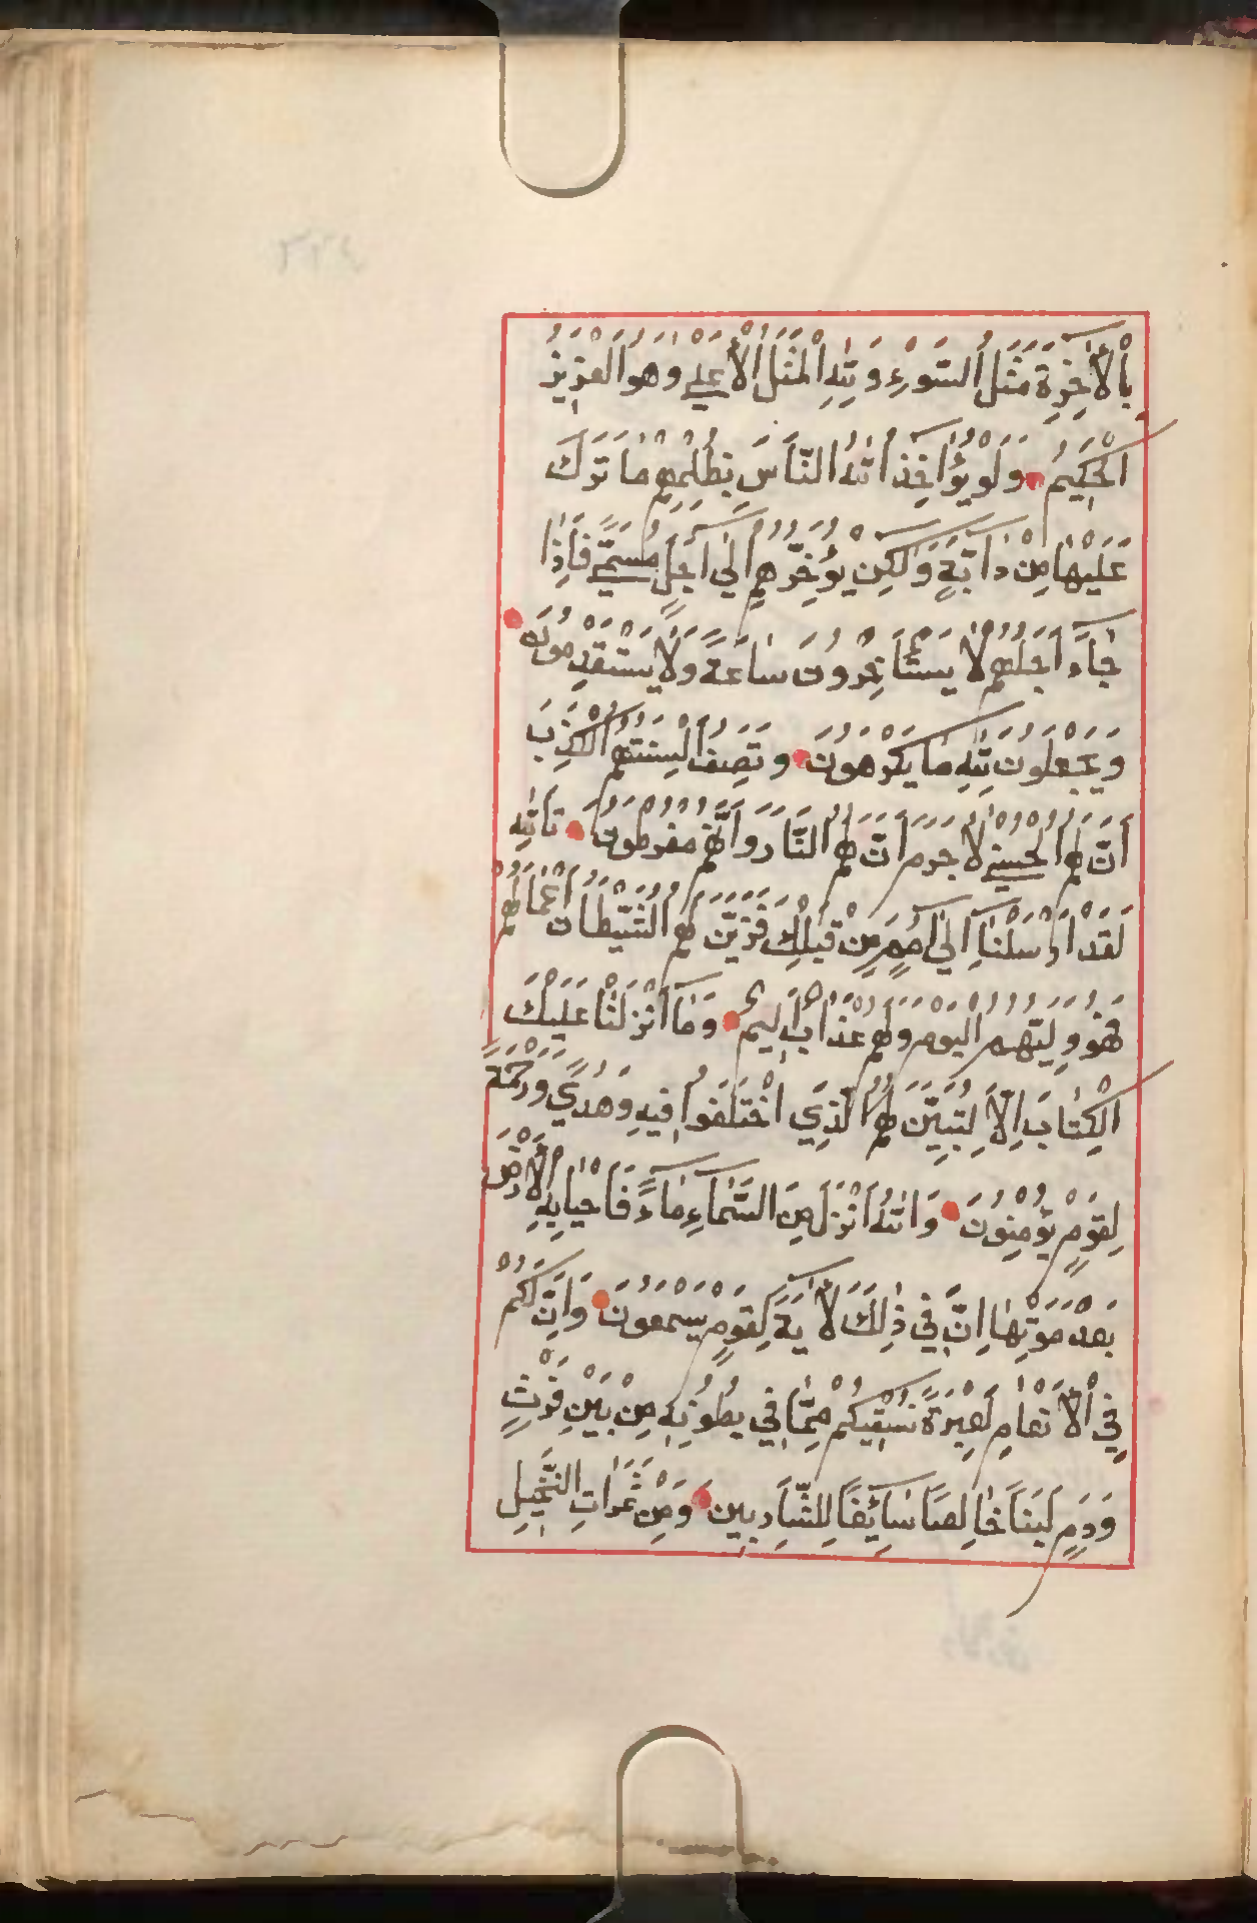 بِالْأَخِرَةِ مَثَلُ السَّوْءِ وَلِلّٰهِ الْمَثَلُ الْأَعْلٰي وَهُوَ الْعَزِيزُ
الْحَكِيمُ وَلَوْ يُؤَاخِذُ اللّٰهُ النَّاسَ بِظُلْمِهِمْ مَا تَرَكَ
عَلَيْهَا مِنْ دَآبَّةٍ وَلٰكِنْ يُؤَخِّرُهُمْ إِلٰي أَجَلٍ مُسَمًّي فَإِذَا
جَآءَ أَجَلُهُمْ لَا يَسْتَأْخِرُونَ سَاعَةً وَلَا يَسْتَقْدِمُونَ
وَيَجْعَلُونَ لِلّٰهِ مَا يَكْرَهُونَ وَتَصِفُ أَلْسِنَتُهُمُ الْكَذِبَ
أَنَّ لَهُمُ الْحُسْنٰي لَا جَرَمَ أَنَّ لَهُمُ النَّارَ وَأَنَّهُمْ مُفْرَطُونَ تَاللّٰهِ
لَقَدْ أَرْسَلْنَآ إِلٰي أُمَمٍ مِنْ قَبْلِكَ فَزَيَّنَ لَهُمُ الشَّيْطَانُ أَعْمَالَهُمْ
فَهُوَ وَلِيُّهُمُ الْيَوْمَ وَلَهُمْ عَذَابٌ أَلِيمٌ وَمَآ أَنْزَلْنَا عَلَيْكَ
الْكِتَابَ إِلَّا لِتُبَيِّنَ لَهُمُ الَّذِي اخْتَلَفُوا فِيهِ وَهُدًي وَرَحْمَةً
لِقَوْمٍ يُؤْمِنُونَ وَاللّٰهُ أَنْزَلَ مِنَ السَّمَآءِ مَآءً فَأَحْيَا بِهِ الْأَرْضَ
بَعْدَ مَوْتِهَا إِنَّ فِي ذٰلِكَ لَأَيَةً لِقَوْمٍ يَسْمَعُونَ وَإِنَّ لَكُمْ
فِي الْأَنْعَامِ لَعِبْرَةً نُسْقِيكُمْ مِمَّا فِي بُطُونِهِ مِنْ بَيْنِ فَرْثٍ
وَدَمٍ لَبَنًا خَالِصًا سَآئِغًا لِلشَّارِبِينَ وَمِنْ ثَمَرَاتِ النَّخِيلِ